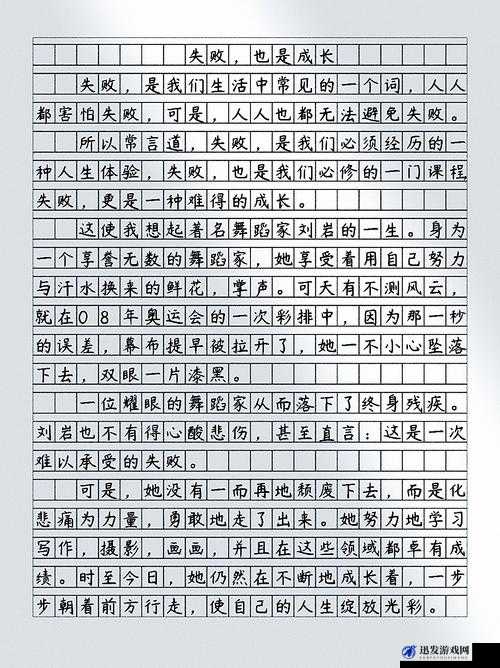 失败，也是成长
失败，是我们生活中常见的一个词，人人
都害怕失败，可是，人人也都无法避免失败。
所以常言道，失败，是我们必须经历的一
种人生体验，失败，也是我们必修的一门课程，
失败，更是一种难得的成长。
这使我想起著名舞蹈家刘岩的一生。身为
一个享誉无数的舞蹈家，她享受着用自己努力
与汗水换来的鲜花，掌声。可天有不测风云，
就在08年奥运会的一次彩排中，因为那一秒
的误差，幕布提早被拉开了，她一不小心坠落
下去，双眼一片漆黑。
一位耀眼的舞蹈家从而落下了终身残疾。
刘岩也不有得心酸悲伤，甚至直言：这是一次
难以承受的失败。
可是，她没有一而再地颓废下去，而是化
悲痛为力量，勇敢地走了出来。她努力地学习
写作，摄影，画画，并且在这些领域都卓有成
绩。时至今日，她仍然在不断地成长着，一步
步朝着前方行走，使自己的人生绽放光彩。
迅发游戏网